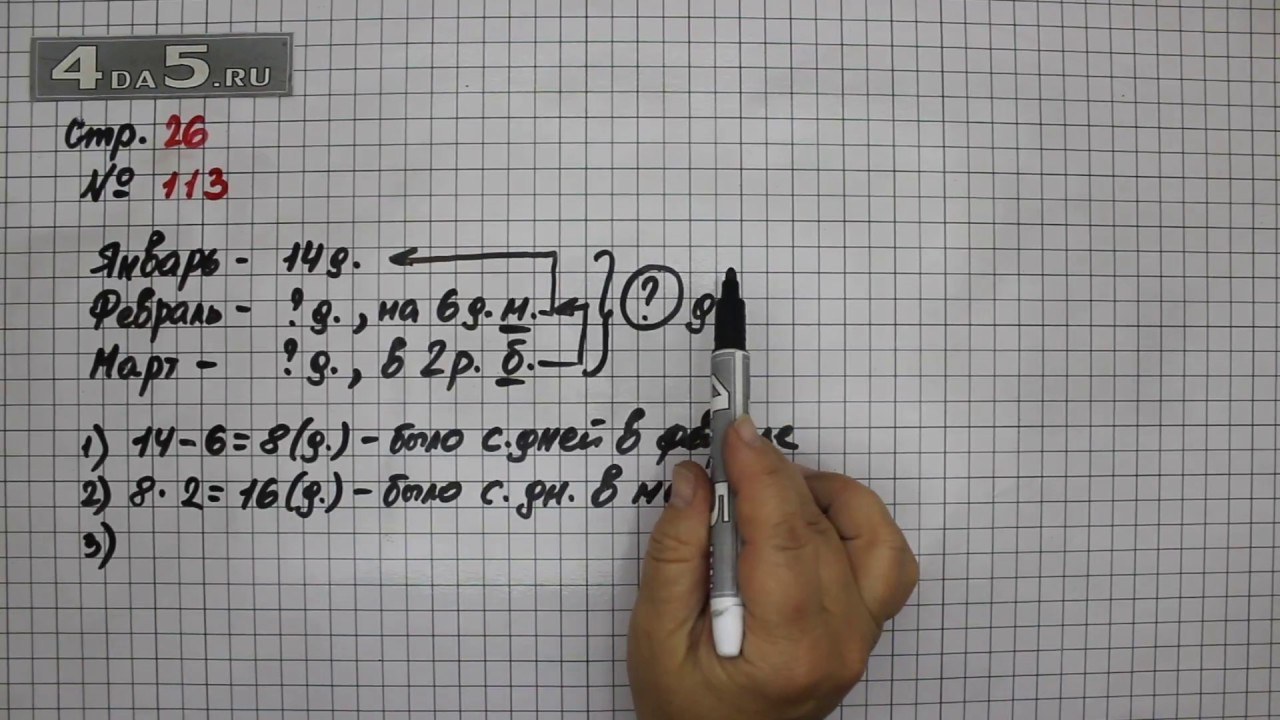 4DA5.RU
Стр. 26
№ 113
Январь - 14 д.
Февраль - ? д., на 6 д. м. ? д
Март - ? д., в 2 р. б.
1) 14 - 6 = 8 (д.) - было с. дней в
2) 8 · 2 = 16 (д.) - было с. дн. в
3)